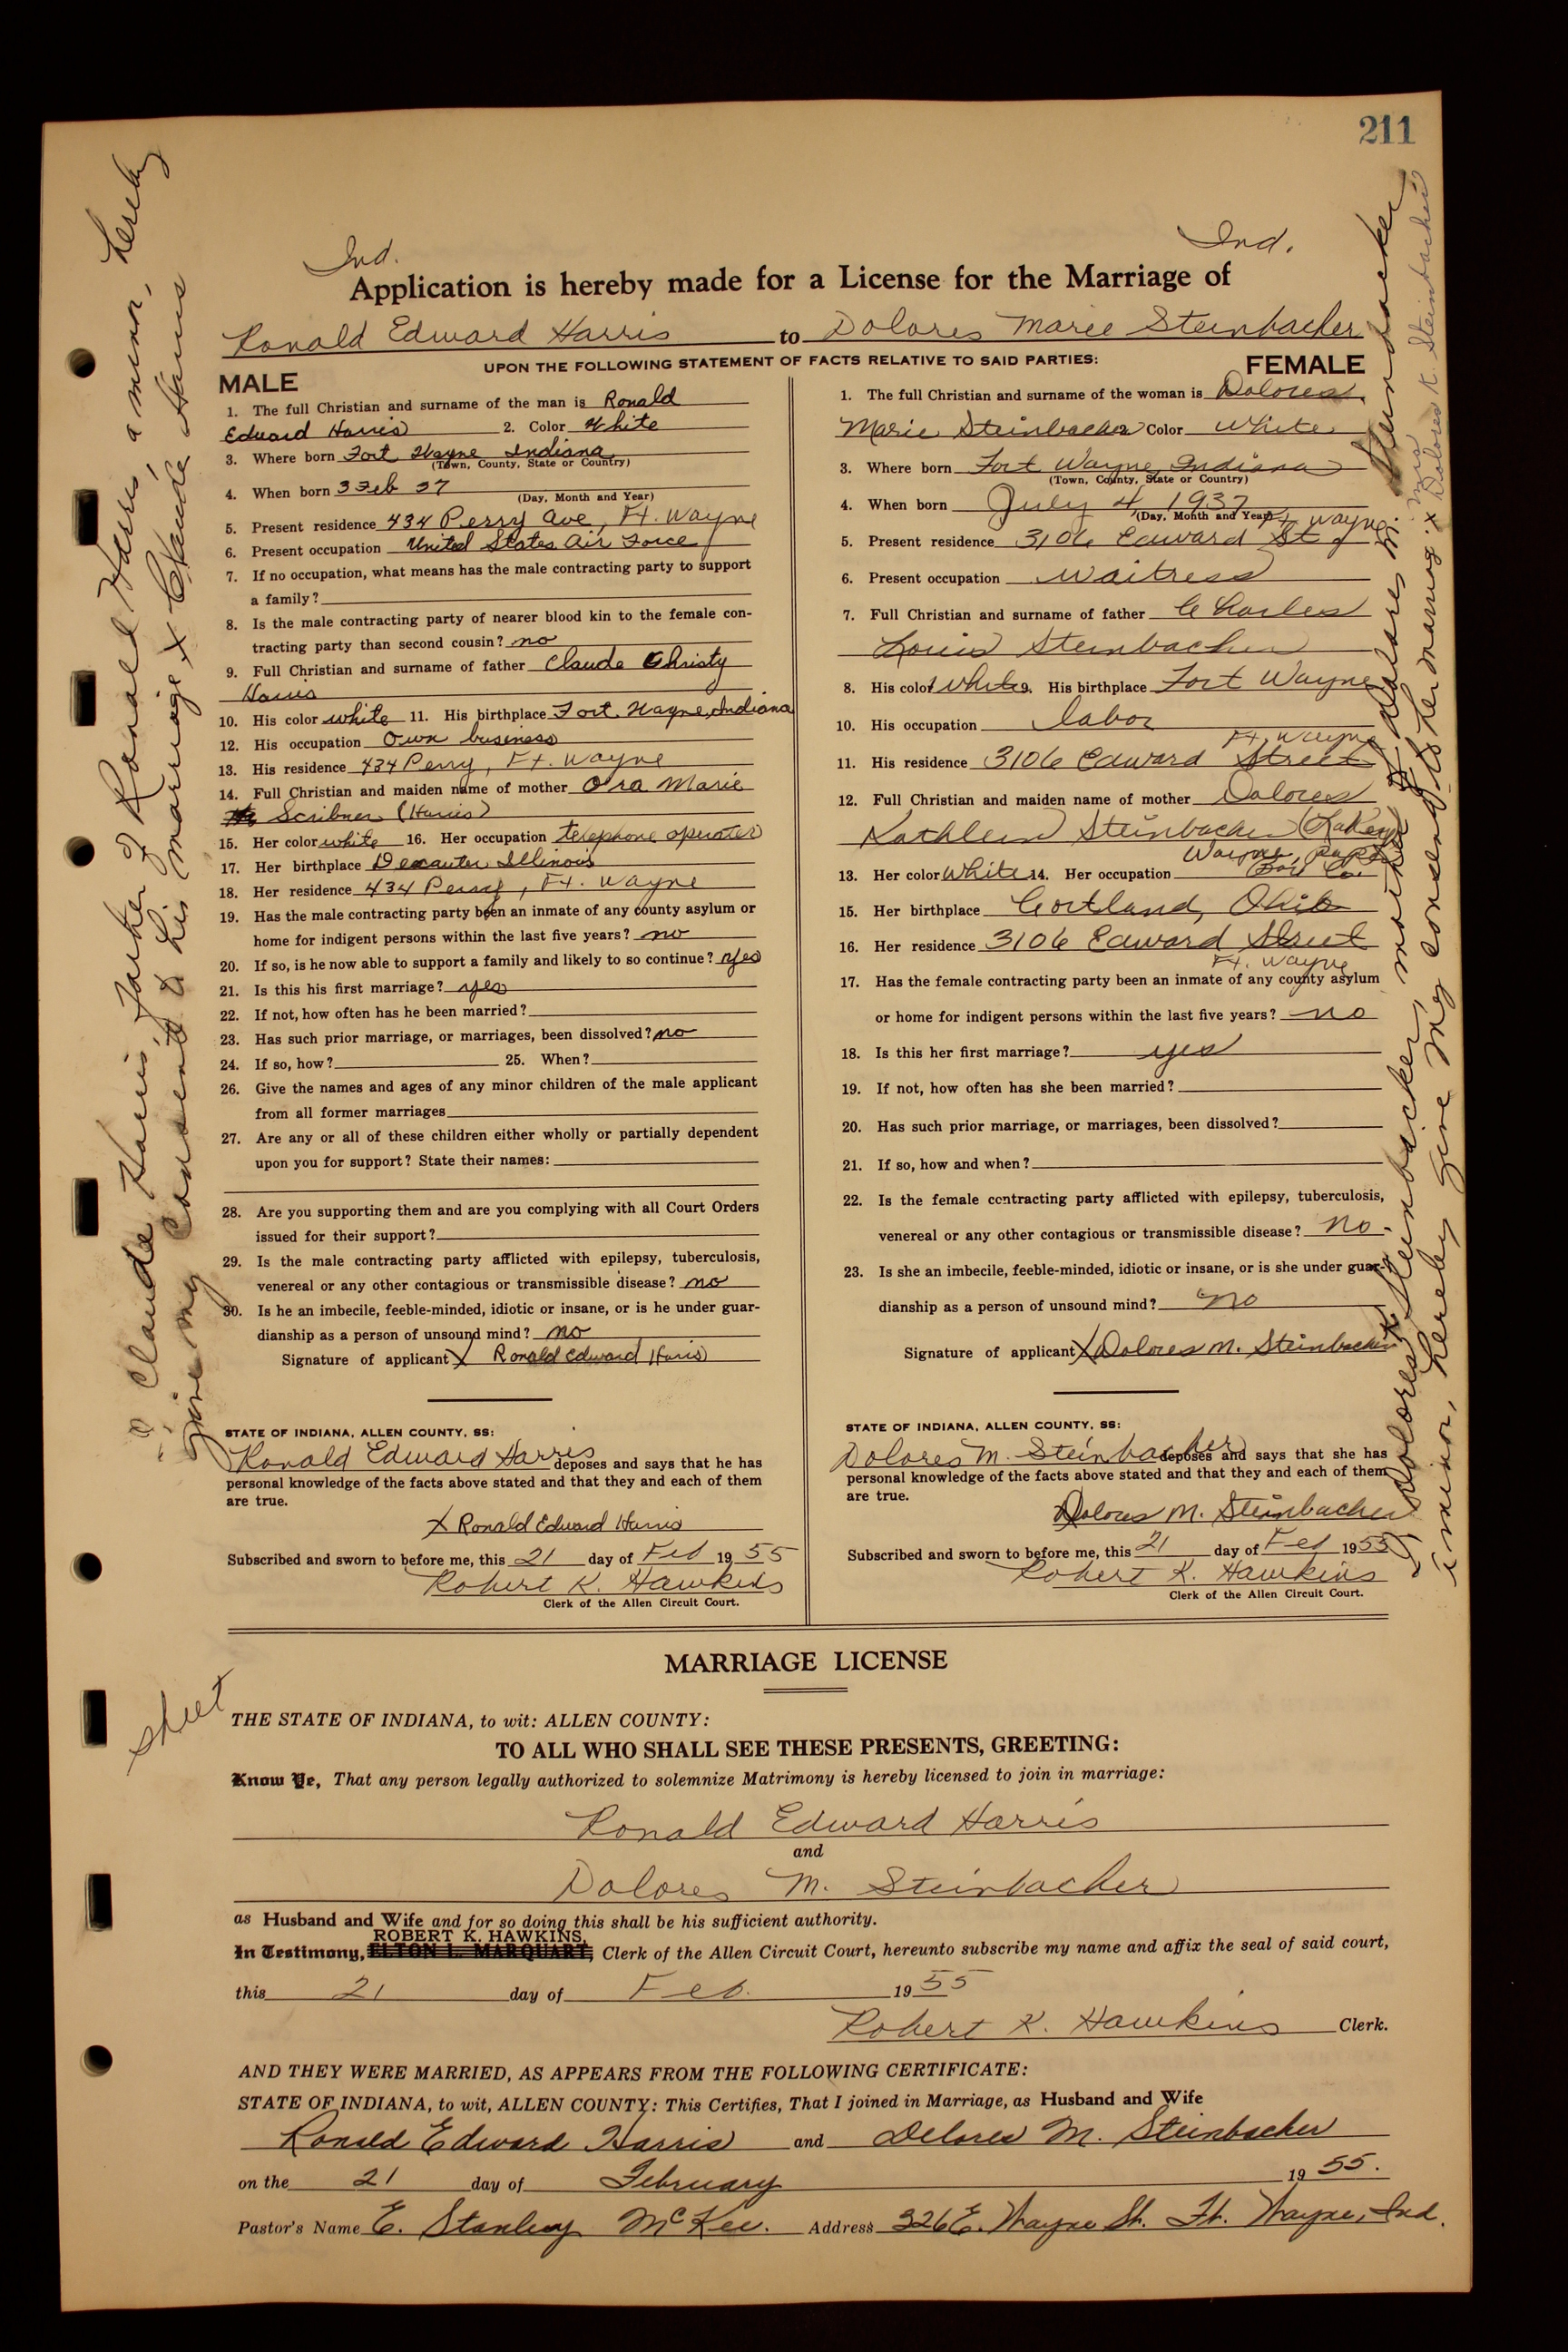 211
Ind.
Ind.
Application is hereby made for a License for the Marriage of
Ronald Edward Harris to Dolores Marie Steinbacher
UPON THE FOLLOWING STATEMENT OF FACTS RELATIVE TO SAID PARTIES:
MALE
1. The full Christian and surname of the man is Ronald
Edward Harris 2. Color White
3. Where born Fort Wayne Indiana
(Town, County, State or Country)
4. When born 3 Feb 37
(Day, Month and Year)
5. Present residence 434 Perry Ave, Ft. Wayne
6. Present occupation United States Air Force
7. If no occupation, what means has the male contracting party to support
a family?
8. Is the male contracting party of nearer blood kin to the female con-
tracting party than second cousin? no
9. Full Christian and surname of father Claude Christy
Harris
10. His color white 11. His birthplace Fort Wayne, Indiana
12. His occupation Own business
13. His residence 434 Perry, Ft. Wayne
14. Full Christian and maiden name of mother Ora Marie
Scribner (Harris)
15. Her color white 16. Her occupation telephone operater
17. Her birthplace Decauter Illinois
18. Her residence 434 Perry, Ft. Wayne
19. Has the male contracting party been an inmate of any county asylum or
home for indigent persons within the last five years? no
20. If so, is he now able to support a family and likely to so continue? yes
21. Is this his first marriage? yes
22. If not, how often has he been married?
23. Has such prior marriage, or marriages, been dissolved? no
24. If so, how? 25. When?
26. Give the names and ages of any minor children of the male applicant
from all former marriages
27. Are any or all of these children either wholly or partially dependent
upon you for support? State their names:
28. Are you supporting them and are you complying with all Court Orders
issued for their support?
29. Is the male contracting party afflicted with epilepsy, tuberculosis,
venereal or any other contagious or transmissible disease? no
30. Is he an imbecile, feeble-minded, idiotic or insane, or is he under guar-
dianship as a person of unsound mind? no
Signature of applicant X Ronald Edward Harris
STATE OF INDIANA, ALLEN COUNTY, SS:
Ronald Edward Harris deposes and says that he has
personal knowledge of the facts above stated and that they and each of them
are true.
X Ronald Edward Harris
Subscribed and sworn to before me, this 21 day of Feb 1955
Robert K. Hawkins
Clerk of the Allen Circuit Court.
FEMALE
1. The full Christian and surname of the woman is Dolores
Marie Steinbacher 2. Color White
3. Where born Fort Wayne, Indiana
(Town, County, State or Country)
4. When born July 4, 1937
(Day, Month and Year)
Ft. Wayne
5. Present residence 3106 Edward St
6. Present occupation Waitress
7. Full Christian and surname of father Charles
Louis Steinbacher
8. His color white 9. His birthplace Fort Wayne
10. His occupation labor
Ft. Wayne
11. His residence 3106 Edward Street
12. Full Christian and maiden name of mother Dolores
Kathleen Steinbacher (Lakey)
Wayne Pump
13. Her color White 14. Her occupation Co.
15. Her birthplace Cortland, Ohio
16. Her residence 3106 Edward Street
Ft. Wayne
17. Has the female contracting party been an inmate of any county asylum
or home for indigent persons within the last five years? no
18. Is this her first marriage? yes
19. If not, how often has she been married?
20. Has such prior marriage, or marriages, been dissolved?
21. If so, how and when?
22. Is the female contracting party afflicted with epilepsy, tuberculosis,
venereal or any other contagious or transmissible disease? no.
23. Is she an imbecile, feeble-minded, idiotic or insane, or is she under guar-
dianship as a person of unsound mind? no
Signature of applicant X Dolores M. Steinbacher
STATE OF INDIANA, ALLEN COUNTY, SS:
Dolores M. Steinbacher deposes and says that she has
personal knowledge of the facts above stated and that they and each of them
are true.
X Dolores M. Steinbacher
Subscribed and sworn to before me, this 21 day of Feb 1955
Robert K. Hawkins
Clerk of the Allen Circuit Court.
I Claude Harris, father of Ronald Harris, a minor, hereby
give my consent to his marriage X Claude Harris
I, Dolores K. Steinbacher, mother of Dolores M. Steinbacher
a minor, hereby give my consent to her marriage X Mrs. Dolores K. Steinbacher
sheet
MARRIAGE LICENSE
THE STATE OF INDIANA, to wit: ALLEN COUNTY:
TO ALL WHO SHALL SEE THESE PRESENTS, GREETING:
Know Ye, That any person legally authorized to solemnize Matrimony is hereby licensed to join in marriage:
Ronald Edward Harris
and
Dolores M. Steinbacher
as Husband and Wife and for so doing this shall be his sufficient authority.
ROBERT K. HAWKINS,
In Testimony, ELTON L. MARQUART, Clerk of the Allen Circuit Court, hereunto subscribe my name and affix the seal of said court,
this 21 day of Feb. 1955
Robert K. Hawkins Clerk.
AND THEY WERE MARRIED, AS APPEARS FROM THE FOLLOWING CERTIFICATE:
STATE OF INDIANA, to wit, ALLEN COUNTY: This Certifies, That I joined in Marriage, as Husband and Wife
Ronald Edward Harris and Delores M. Steinbacher
on the 21 day of February 1955.
Pastor's Name E. Stanley McKee. Address 326 E. Wayne St. Ft. Wayne, Ind.